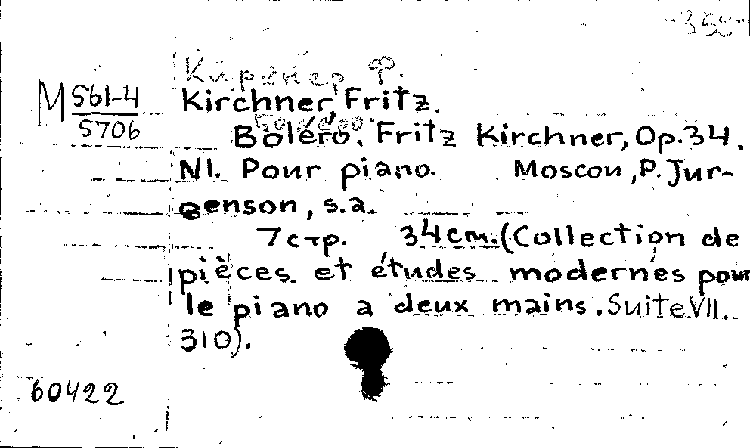 - 358 -
Кирхнер Ф.
M 561-4
5706
Kirchner, Fritz.
Boléro. Fritz Kirchner, Op.34.
N1. Pour piano. Moscou, P. Jur-
genson, s.a.
7 стр. 34 см. (Collection de
pièces et études modernes pour
le piano a deux mains. Suite VII.
310).
60422